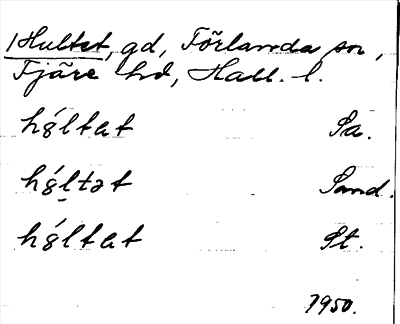 Hultet, gd, Förlanda sn,
Fjäre hd, Hall. l.
hó̤ltat Sa.
hó̤ltət Sand.
hó̤ltat St.
1950.